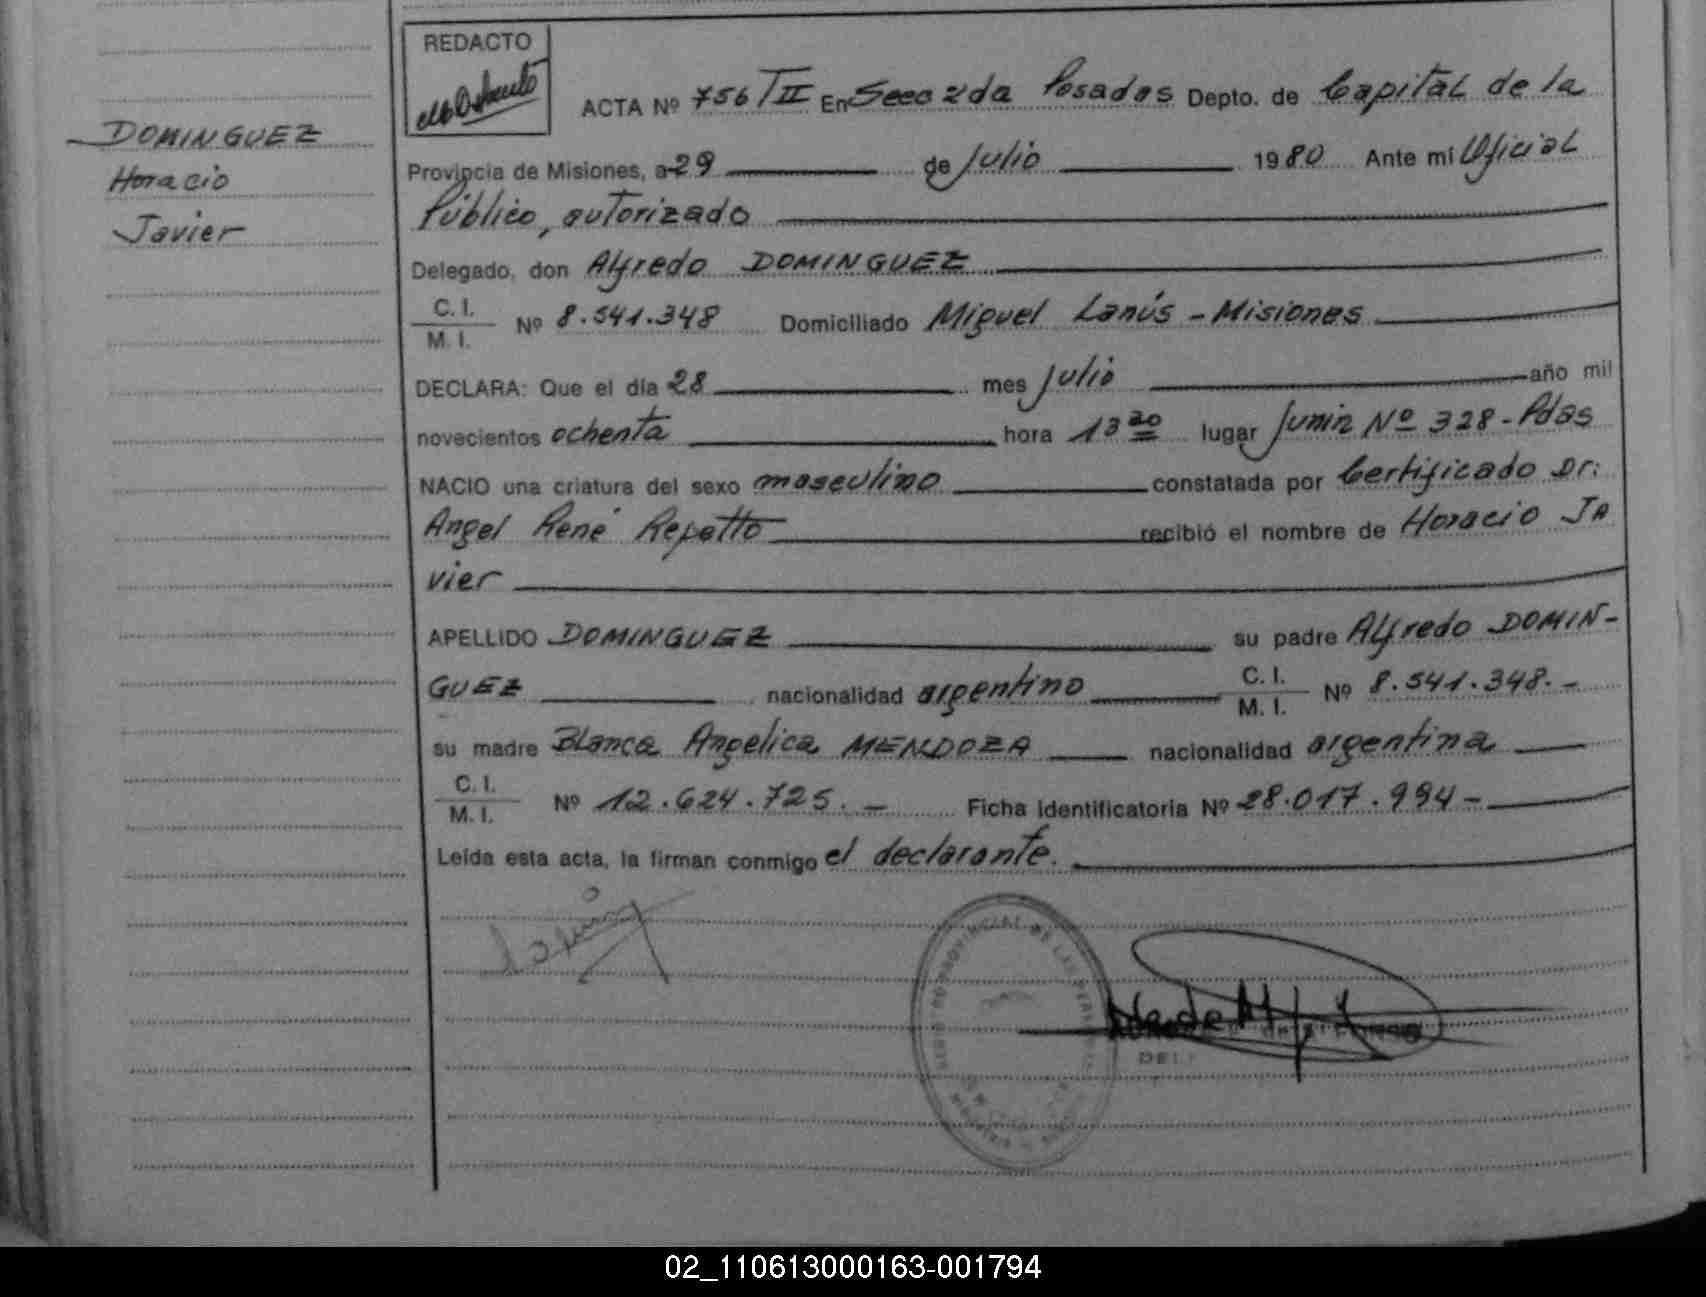 REDACTO
DOMINGUEZ
Horacio
Javier
ACTA Nº 756/II En Secc 2da Posadas Depto. de Capital de la
Provincia de Misiones, a 29 de Julio 1980 Ante mi Oficial
Público, autorizado
Delegado, don Alfredo DOMINGUEZ
C. I.
M. I. Nº 8.541.348 Domiciliado Miguel Lanús - Misiones
DECLARA: Que el día 28 mes Julio año mil
novecientos ochenta hora 13 20 lugar Junin Nº 328 - Pdas
NACIO una criatura del sexo masculino constatada por Certificado Dr:
Angel René Repetto recibió el nombre de Horacio JA
vier
APELLIDO DOMINGUEZ su padre Alfredo DOMIN-
GUEZ nacionalidad argentino C. I.
M. I. Nº 8.541.348.-
su madre Blanca Angelica MENDOZA nacionalidad argentina
C. I.
M. I. Nº 12.624.725.- Ficha Identificatoria Nº 28.017.994-
Leída esta acta, la firman conmigo el declarante.
02_110613000163-001794